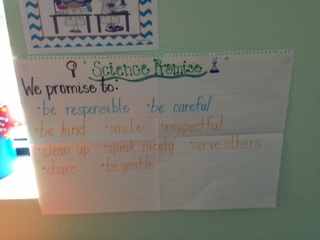 Science Promise
We promise to:
• be responsible • be careful
• be kind • smile • respectful
• clean up • speak nicely • serve others
• share • be gentle